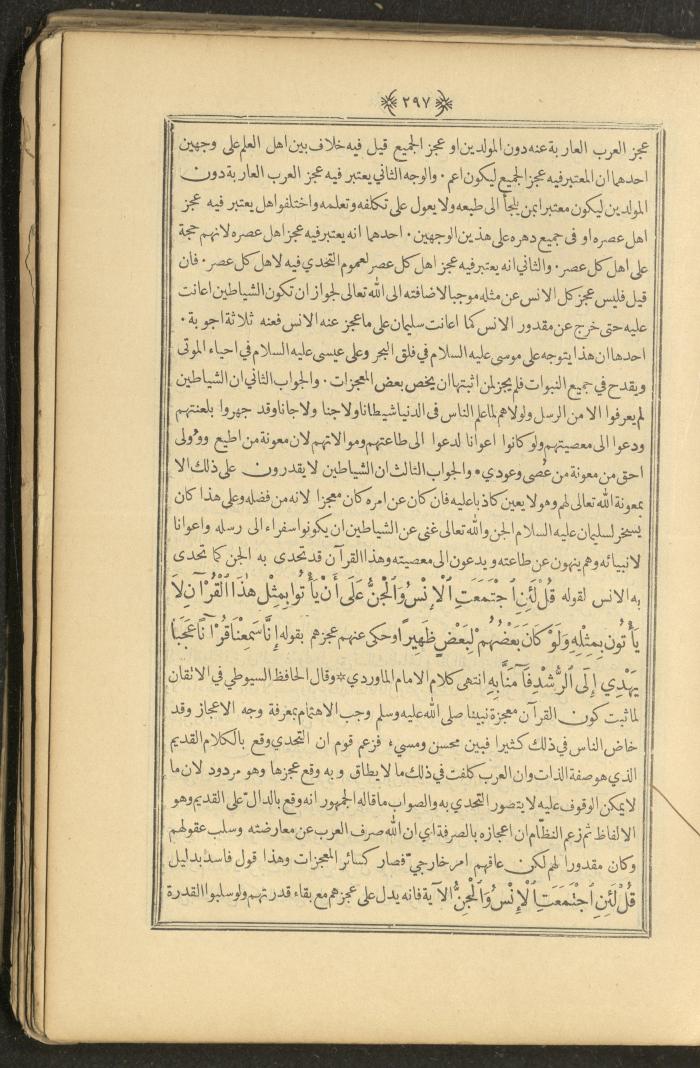 ٢٩٧
عجز العرب العاربة عنه دون المولدين او عجز الجميع قيل فيه خلاف بين اهل العلم على وجهين
احدهما ان المعتبر فيه عجز الجميع ليكون اعم ٠ والوجه الثاني يعتبر فيه عجز العرب العاربة دون
المولدين ليكون معتبرا بمن يلجأ الى طبعه ولا يعول على تكلفه وتعلمه واختلفوا هل يعتبر فيه عجز
اهل عصره او في جميع دهره على هذين الوجهين ٠ احدهما انه يعتبر فيه عجز اهل عصره لانهم حجة
على اهل كل عصر ٠ والثاني انه يعتبر فيه عجز اهل كل عصر لعموم التحدي فيه لاهل كل عصر ٠ فان
قيل فليس عجز كل الانس عن مثله موجبا لاضافته الى الله تعالى لجواز ان تكون الشياطين اعانت
عليه حتى خرج عن مقدور الانس كما اعانت سليمان على ما عجز عنه الانس فعنه ثلاثة اجوبة ٠
احدها ان هذا يتوجه على موسى عليه السلام في فلق البحر وعلى عيسى عليه السلام في احياء الموتى
ويقدح في جميع النبوات فلم يجز لمن اثبتها ان يخص بعض المعجزات ٠ والجواب الثاني ان الشياطين
لم يعرفوا الا من الرسل ولولاهم لما علم الناس في الدنيا شيطانا ولا جنا ولا جانا وقد جهروا بلعنتهم
ودعوا الى معصيتهم ولو كانوا اعوانا لدعوا الى طاعتهم وموالاتهم لان معونة من اطيع ووُولى
احق من معونة من عُصى وعودي ٠ والجواب الثالث ان الشياطين لا يقدرون على ذلك الا
بمعونة الله تعالى لهم وهو لا يعين كاذبا عليه فان كان عن امره كان معجزا لانه من فضله وعلى هذا كان
يسخر لسليمان عليه السلام الجن والله تعالى غنى عن الشياطين ان يكونوا سفراء الى رسله واعوانا
لانبيائه وهم ينهون عن طاعته ويدعون الى معصيته وهذا القرآن قد تحدى به الجن كما تحدى
به الانس لقوله قُلْ لَئِنِ ٱجْتَمَعَتِ ٱلْإِنْسُ وَٱلْجِنُّ عَلَى أَنْ يَأْتُوا بِمِثْلِ هٰذَا ٱلْقُرْآنِ لَا
يَأْتُونَ بِمِثْلِهِ وَلَوْ كَانَ بَعْضُهُمْ لِبَعْضٍ ظَهِيرًا وحكى عنهم عجزهم بقوله إِنَّا سَمِعْنَا قُرْآنًا عَجَبًا
يَهْدِي إِلَى ٱلرُّشْدِ فَآمَنَّا بِهِ انتهى كلام الامام الماوردي * وقال الحافظ السيوطي في الاتقان
لما ثبت كون القرآن معجزة نبينا صلى الله عليه وسلم وجب الاهتمام بمعرفة وجه الاعجاز وقد
خاض الناس في ذلك كثيرا فبين محسن ومسيء فزعم قوم ان التحدي وقع بالكلام القديم
الذي هو صفة الذات وان العرب كلفت في ذلك ما لا يطاق وبه وقع عجزها وهو مردود لان ما
لا يمكن الوقوف عليه لا يتصور التحدي به والصواب ما قاله الجمهور انه وقع بالدالّ على القديم وهو
الالفاظ ثم زعم النظّام ان اعجازه بالصرفة اي ان الله صرف العرب عن معارضته وسلب عقولهم
وكان مقدورا لهم لكن عاقهم امر خارجي فصار كسائر المعجزات وهذا قول فاسد بدليل
قُلْ لَئِنِ ٱجْتَمَعَتِ ٱلْإِنْسُ وَٱلْجِنُّ الآية فانه يدل على عجزهم مع بقاء قدرتهم ولو سلبوا القدرة